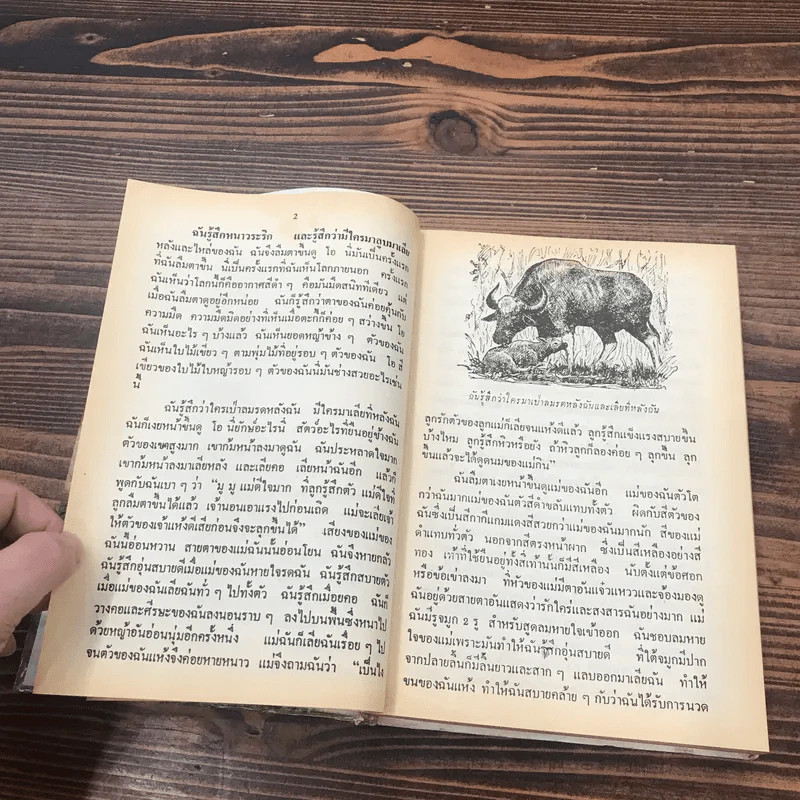 2
ฉันรู้สึกหนาวระริก และรู้สึกว่ามีใครมาลูบมาเลีย
หลังและไหล่ของฉัน ฉันจึงลืมตาขึ้นดู โอ นี่มันเป็นครั้งแรก
ที่ฉันลืมตาขึ้น นี่เป็นครั้งแรกที่ฉันเห็นโลกภายนอก ครั้งแรก
ฉันเห็นว่าโลกนี้ก็คืออากาศสีดำ ๆ คือมันมืดสนิททีเดียว แต่
เมื่อฉันลืมตาดูอยู่อีกหน่อย ฉันก็รู้สึกว่าตาของฉันค่อยคุ้นกับ
ความมืด ความมืดมิดอย่างที่เห็นเมื่อตะกี้ก็ค่อย ๆ สว่างขึ้น โอ
ฉันเห็นอะไร ๆ บ้างแล้ว ฉันเห็นยอดหญ้าข้าง ๆ ตัวของฉัน
ฉันเห็นใบไม้เขียว ๆ ตามพุ่มไม้ที่อยู่รอบ ๆ ตัวของฉัน โอ สี
เขียวของใบไม้ใบหญ้ารอบ ๆ ตัวของฉันนี่มันช่างสวยอะไรเช่น
นี้
ฉันรู้สึกว่าใครเป่าลมรดหลังฉัน มีใครมาเลียที่หลังฉัน
ฉันก็เงยหน้าขึ้นดู โอ นี่ยักษ์อะไรนี่ สัตว์อะไรที่ยืนอยู่ข้างฉัน
ตัวของเขาสูงมาก เขาก้มหน้าลงมาดูฉัน ฉันประหลาดใจมาก
เขาก้มหน้าลงมาเลียหลัง และเลียคอ เลียหน้าฉันอีก แล้วก็
พูดกับฉันเบา ๆ ว่า “มู มู แม่ดีใจมาก ที่ลูกรู้สึกตัว แม่ดีใจที่
ลูกลืมตาขึ้นได้แล้ว เจ้านอนเอาแรงไปก่อนเถิด แม่จะเลียเจ้า
ให้ตัวของเจ้าแห้งดีเสียก่อนจึงจะลุกขึ้นได้” เสียงของแม่ของ
ฉันนี้อ่อนหวาน สายตาของแม่ฉันนั้นอ่อนโยน ฉันจึงหายกลัว
ฉันรู้สึกอุ่นสบายดีเมื่อแม่ของฉันหายใจรดฉัน ฉันรู้สึกสบายตัว
เมื่อแม่ของฉันเลียฉันทั่ว ๆ ไปทั้งตัว ฉันรู้สึกเมื่อยคอ ฉันก็
วางคอและศีรษะของฉันลงนอนราบ ๆ ลงไปบนพื้นซึ่งหนาไป
ด้วยหญ้าอันอ่อนนุ่มอีกครั้งหนึ่ง แม่ฉันก็เลียฉันเรื่อย ๆ ไป
จนตัวของฉันแห้งจึงค่อยหายหนาว แม่จึงถามฉันว่า “เป็นไง
ฉันรู้สึกว่าใครมาเป่าลมรดหลังฉันและเลียที่หลังฉัน
ลูกรักตัวของลูกแม่ก็เลียจนแห้งดีแล้ว ลูกรู้สึกแข็งแรงสบายขึ้น
บ้างไหม ลูกรู้สึกหิวหรือยัง ถ้าหิวลูกก็ลองค่อย ๆ ลุกขึ้น ลุก
ขึ้นแล้วจะได้ดูดนมของแม่กิน”
ฉันลืมตาเงยหน้าขึ้นดูแม่ของฉันอีก แม่ของฉันตัวโต
กว่าฉันมากแม่ของฉันตัวสีดำขลับแทบทั้งตัว ผิดกับสีตัวของ
ฉันซึ่งเป็นสีกากีแกมแดงสีสวยกว่าแม่ของฉันมากนัก สีของแม่
ดำแทบทั้งตัว นอกจากสีตรงหน้าผาก ซึ่งเป็นสีเหลืองอย่างสี
ทอง เท้าที่ใช้ยืนอยู่ทั้งสี่เท้านั้นก็มีสีเหลือง นับตั้งแต่ข้อศอก
หรือข้อเข่าลงมา ที่หัวของแม่มีตาอันแจ๋วแหววและจ้องมองดู
ฉันอยู่ด้วยสายตาอันแสดงว่ารักใคร่และสงสารฉันอย่างมาก แม่
ฉันมีรูจมูก 2 รู สำหรับสูดลมหายใจเข้าออก ฉันชอบลมหาย
ใจของแม่เพราะมันทำให้ฉันรู้สึกอุ่นสบายดี ที่ใต้จมูกมีปาก
จากปลายลิ้นก็มีลิ้นยาวและสาก ๆ แลบออกมาเลียฉัน ทำให้
ขนของฉันแห้ง ทำให้ฉันสบายคล้าย ๆ กับว่าฉันได้รับการนวด